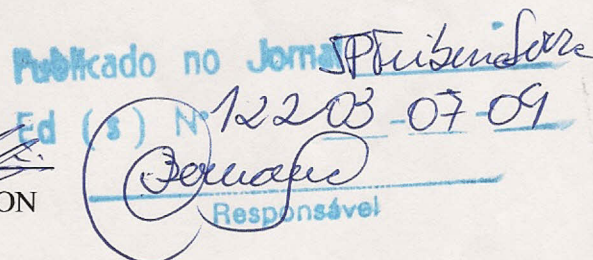 Publicado no Jornal JP Tribuna
Ed (s) Nº 122 03-07-09
ON
Responsável